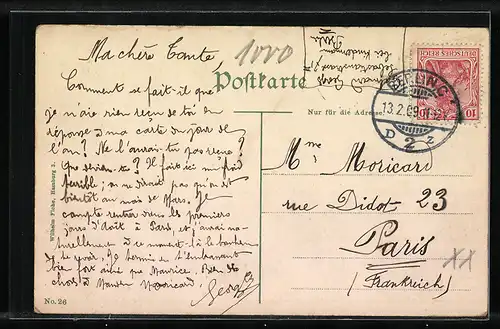 1000
Postkarte
Ma chère Tante
Comment se fait-il que
je n'aie rien reçu de toi en
réponse à ma carte du jour de
l'an? Ne l'aurais-tu pas reçue?
Que deviens-tu? Il fait ici un froid
terrible; on ne dirait pas qu'on est
bientôt au mois de Mars. Je
compte rentrer dans les premiers
jours d'août à Paris, et j'aurai na-
turellement à ce moment-là le bonheur
de te revoir. Je termine en t'embrassant
bien fort ainsi que Maurice. Bien des
choses à Monsieur Moricard.
Georg
Nur für die Adresse
BERLIN
13.2.09
D 2 z
DEUTSCHES REICH
10 10
Mme Moricard
rue Didot 23
Paris
(Frankreich)
XX
Wilhelm Fiehe, Hamburg 3.
No. 26